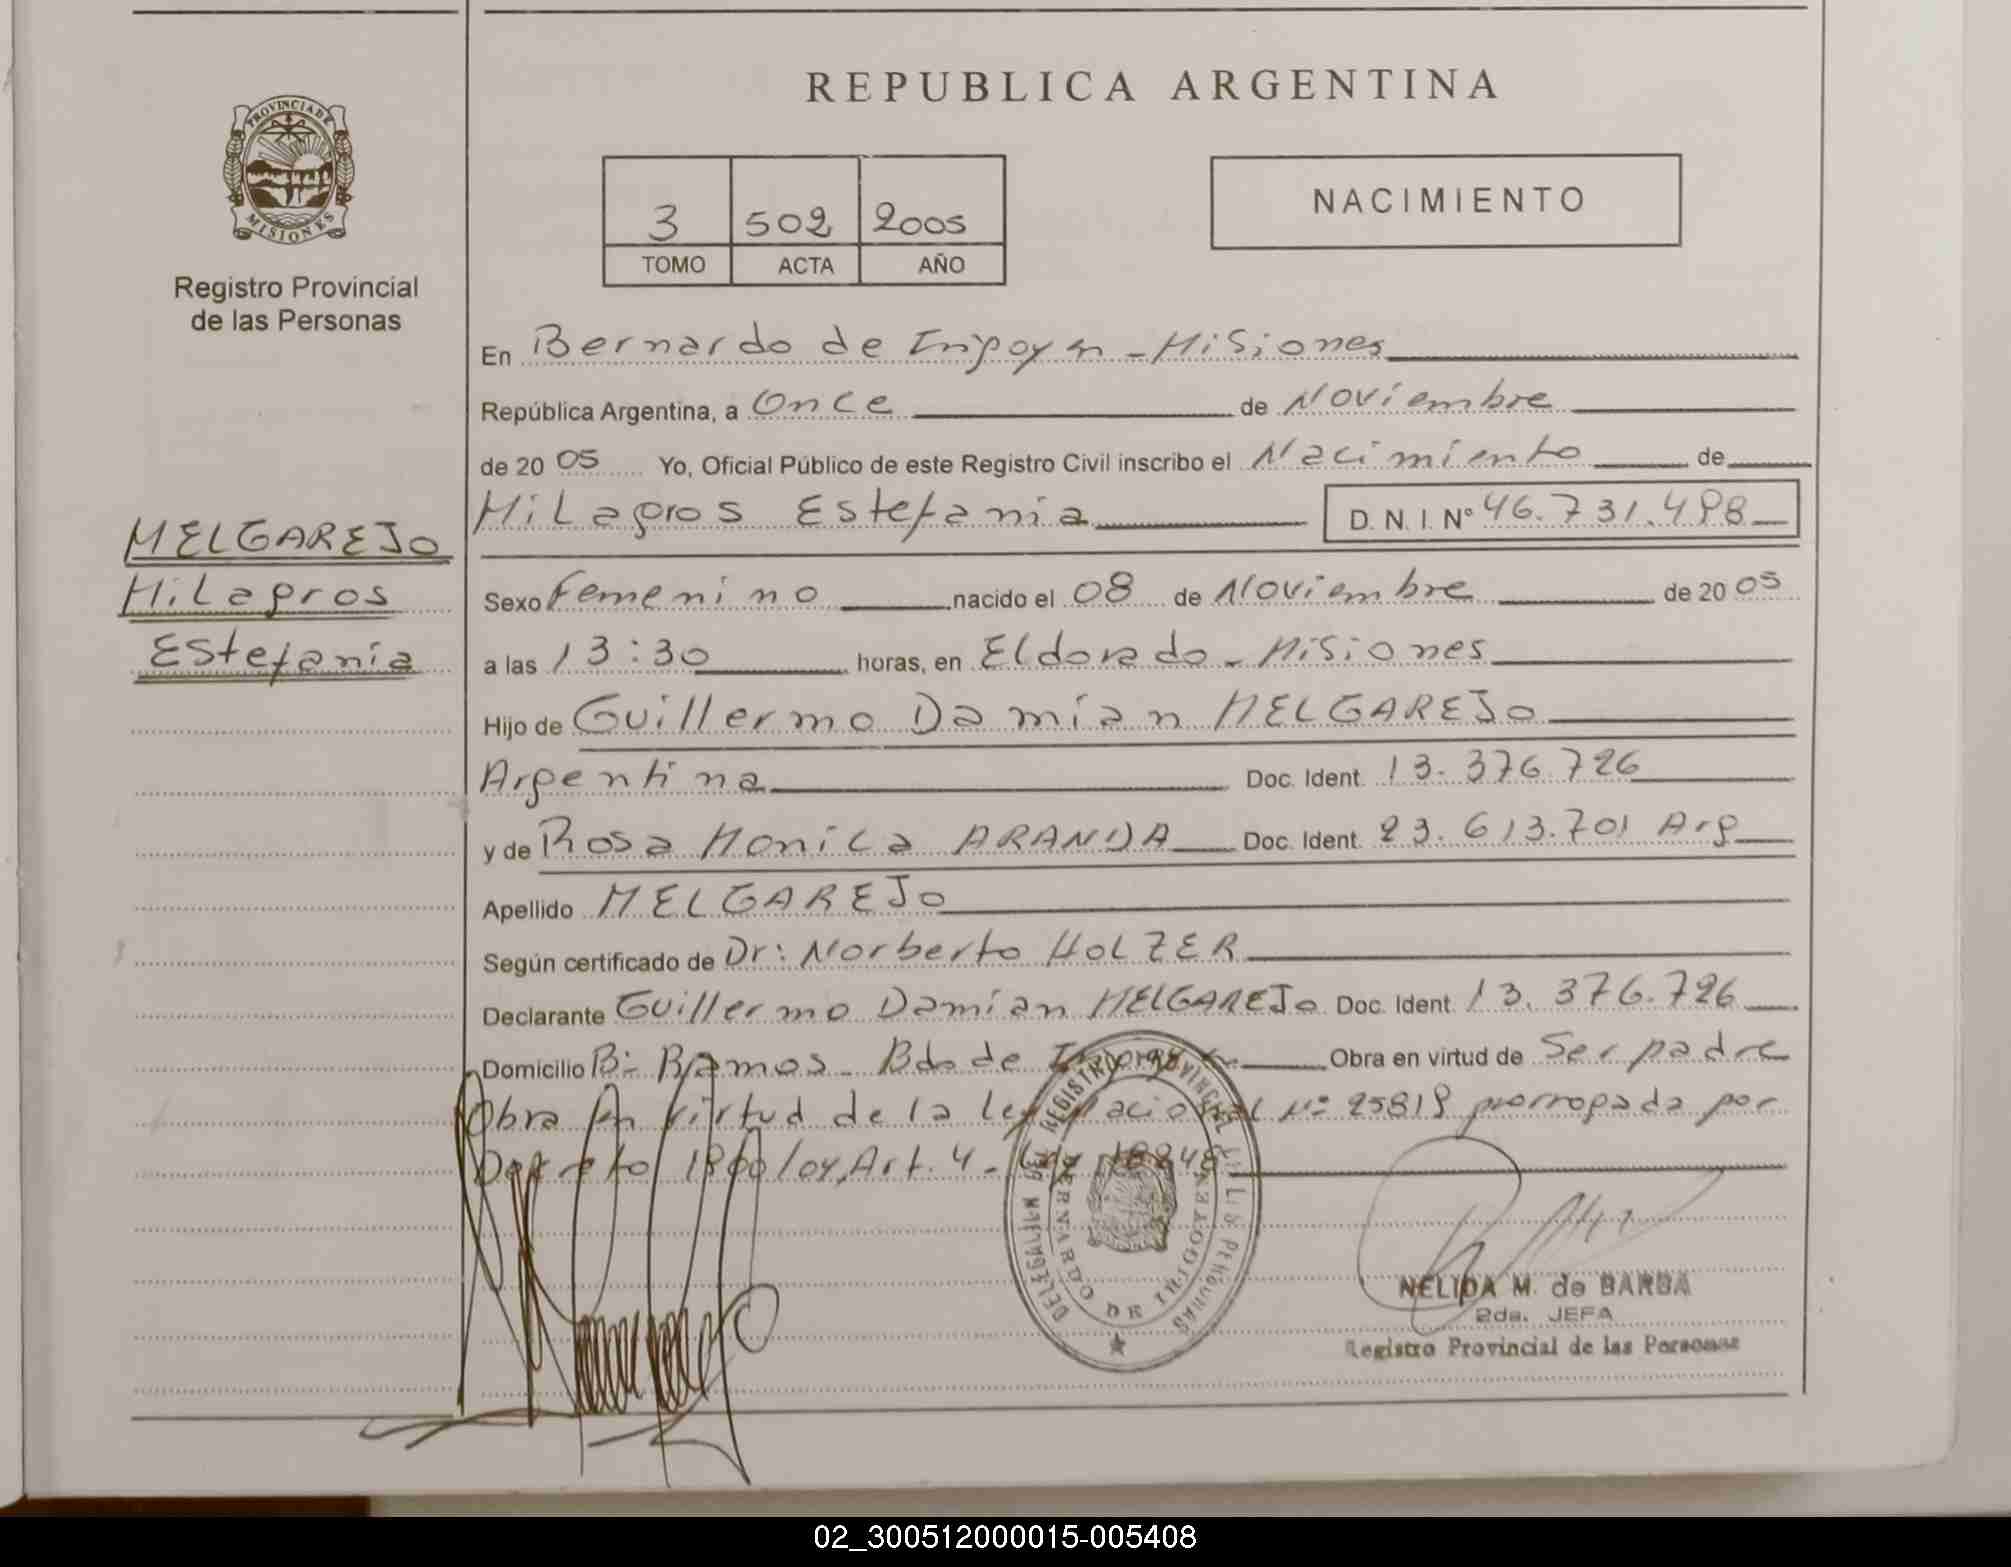 REPUBLICA ARGENTINA
PROVINCIA DE
MISIONES
Registro Provincial
de las Personas
3 502 2005
TOMO ACTA AÑO
NACIMIENTO
En Bernardo de Irigoyen - Misiones
República Argentina, a Once de Noviembre
de 2005 Yo, Oficial Público de este Registro Civil inscribo el Nacimiento de
Milagros Estefania D. N. I. Nº 46.731.498
MELGAREJO
Milagros
Estefania
Sexo Femenino nacido el 08 de Noviembre de 2005
a las 13:30 horas, en Eldorado - Misiones
Hijo de Guillermo Damián MELGAREJO
Argentina Doc. Ident. 13.376.726
y de Rosa Monica ARANDA Doc. Ident. 23.613.701 Arg
Apellido MELGAREJO
Según certificado de Dr: Norberto HOLZER
Declarante Guillermo Damián MELGAREJO Doc. Ident. 13.376.726
Domicilio Bº Ramos - Bdo de Irigoyen Obra en virtud de Ser padre
Obra en virtud de la ley Nacional Nº 25819 prorrogada por
Decreto 1900/04, Art. 4 - Ley 18248
DELEGACION REGISTRO PROVINCIAL DE LAS PERSONAS
BERNARDO DE IRIGOYEN
NELIDA M. de BARBA
2da. JEFA
Registro Provincial de las Personas
02_300512000015-005408